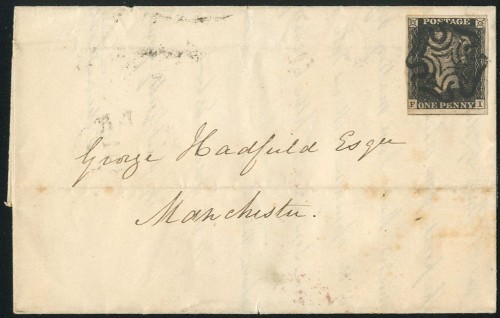 POSTAGE
F I
ONE PENNY
George Hadfield Esqre
Manchester.